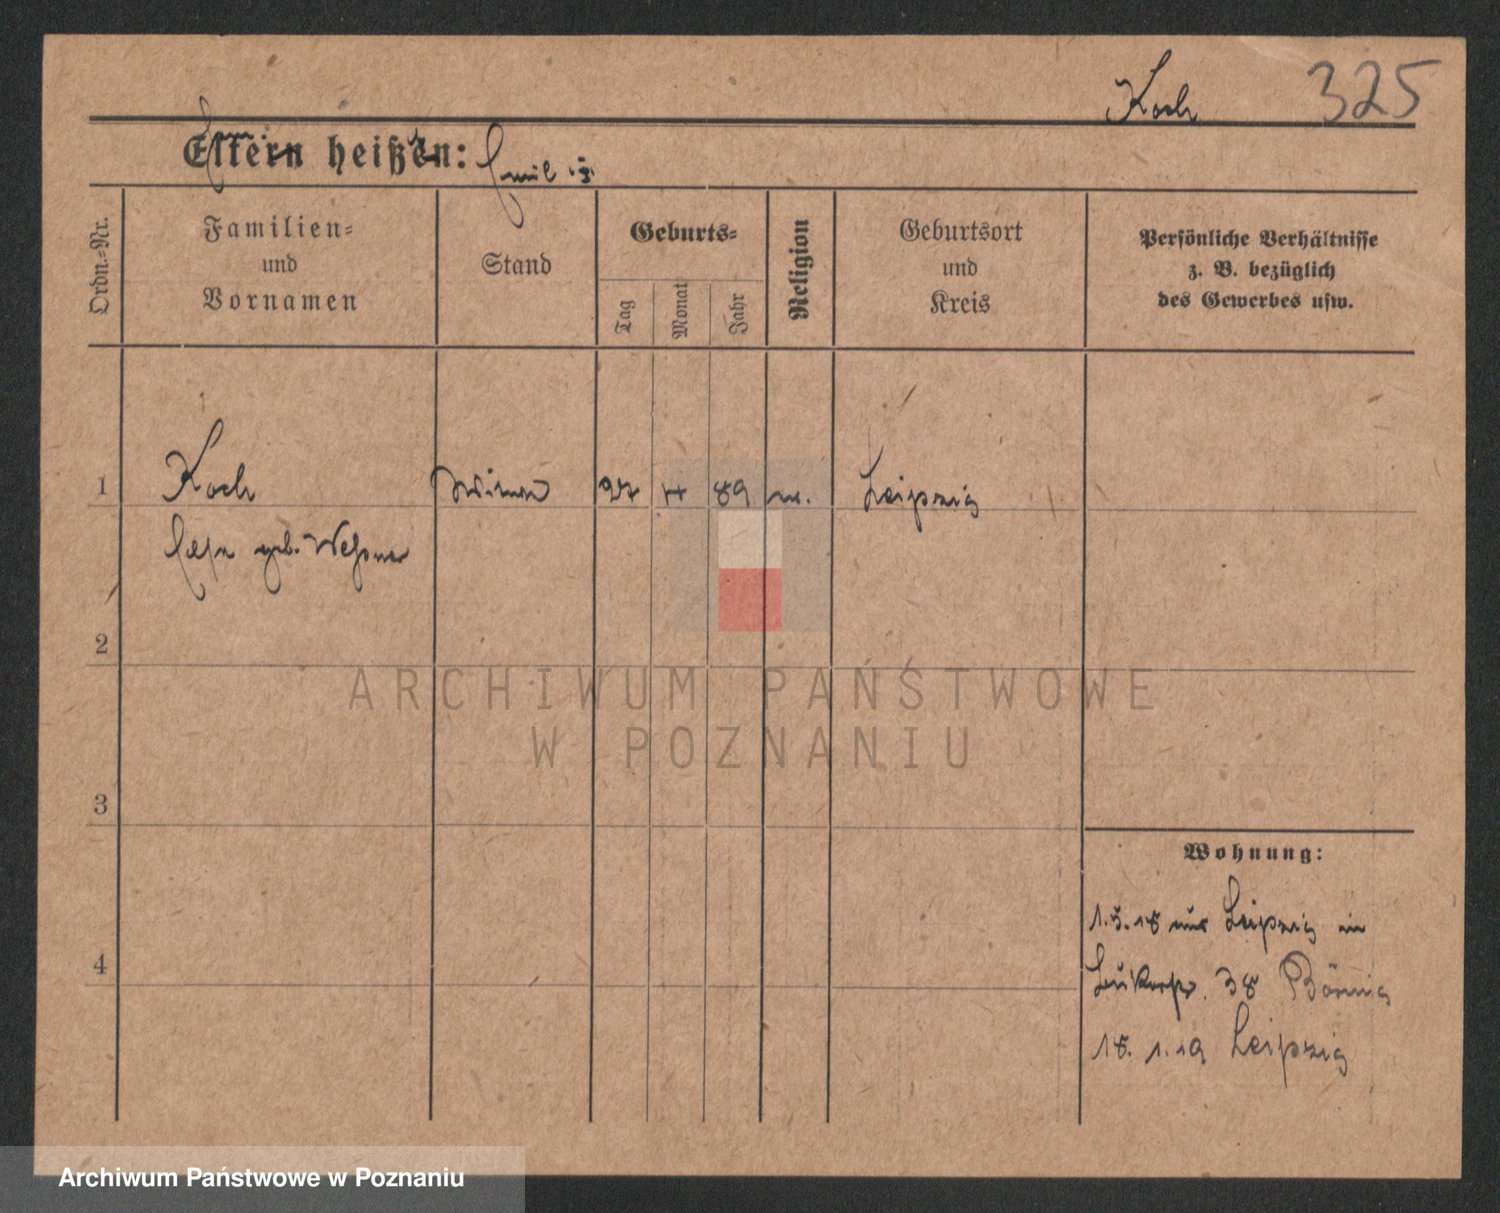 Koch 325
Eltern heißen: Emil
Ordn.-Nr.
Familien-
und
Vornamen
Stand
Geburts-
Tag
Monat
Jahr
Religion
Geburtsort
und
Kreis
Persönliche Verhältnisse
z. B. bezüglich
des Gewerbes usw.
1 Koch Witwe 27 89 Leipzig
geb.
2
ARCHIWUM PAŃSTWOWE
W POZNANIU
3
Wohnung:
1.5.18 aus Leipzig in
4
38
18. 1. 19 Leipzig
Archiwum Państwowe w Poznaniu